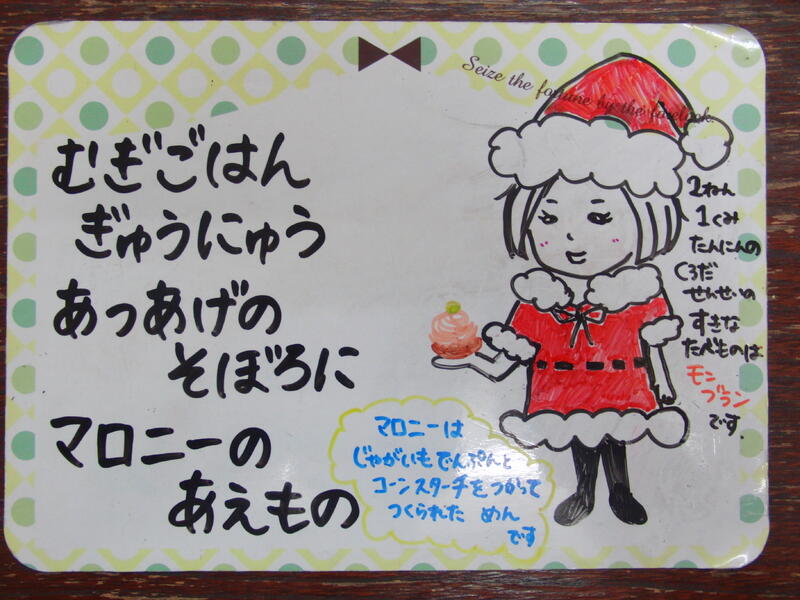 Seize the fortune by the forelock.
むぎごはん
ぎゅうにゅう
あつあげの
そぼろに
マロニーの
あえもの
マロニーは
じゃがいもでんぷんと
コーンスターチをつかって
つくられた めん
です
1ねん
1くみ
たんにんの
くろだ
せんせいの
すきな
たべものは
モン
ブラン
です.